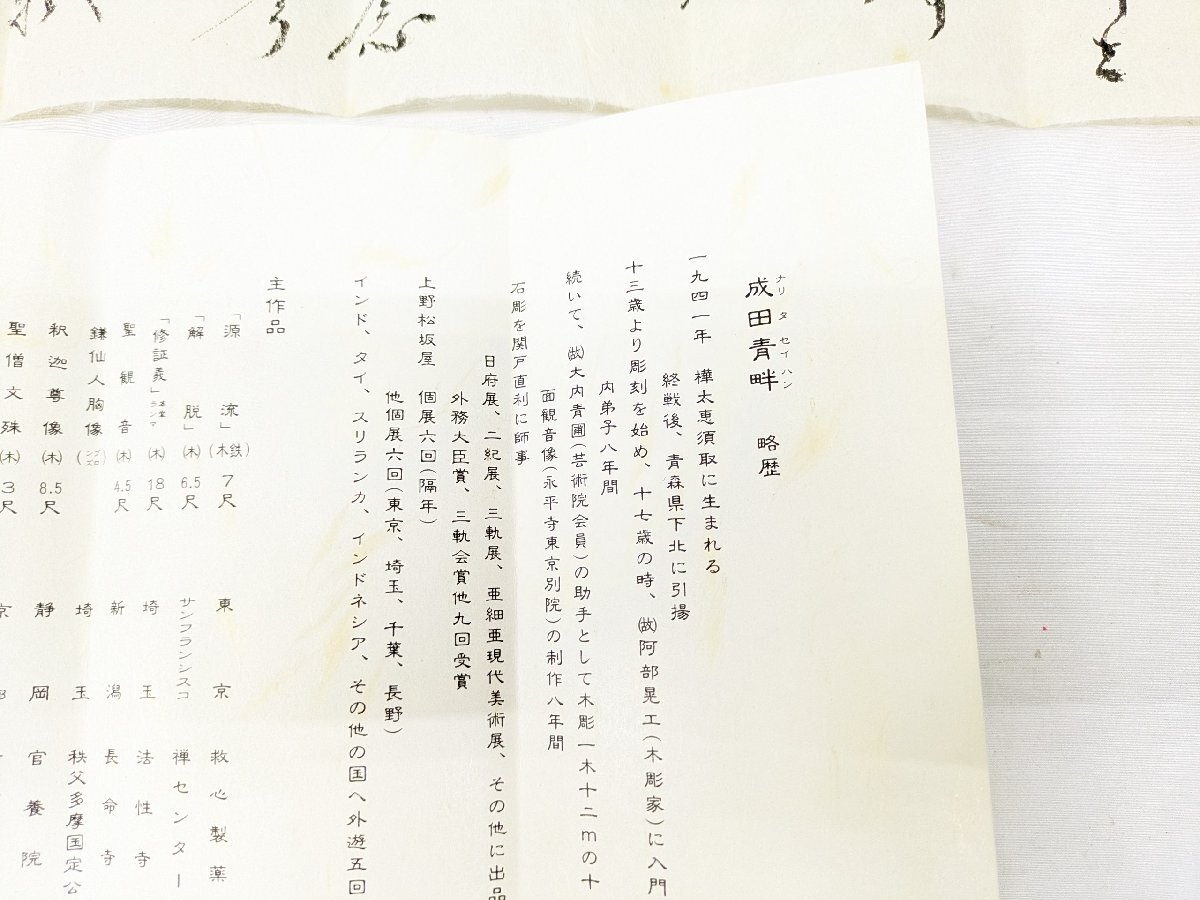 ナリ タ セイハン
成田青畔 略歴
一九四一年 樺太恵須取に生まれる
終戦後、青森県下北に引揚
十三歳より彫刻を始め、十七歳の時、㈹阿部晃工(木彫家)に入門
内弟子八年間
続いて、(故)大内青圃(芸術院会員)の助手として木彫一木十二mの十
面観音像(永平寺東京別院)の制作八年間
石彫を関戸直利に師事
日府展、二紀展、三軌展、亜細亜現代美術展、その他に出品
外務大臣賞、三軌会賞他九回受賞
上野松坂屋 個展六回(隔年)
他個展六回(東京、埼玉、千葉、長野)
インド、タイ、スリランカ、インドネシア、その他の国へ外遊五回
主作品
「源流」(木鉄) 7尺 東京 救心製薬
「解脱」(木) 6.5尺 サンフランシスコ 禅センター
「修証義」 (木) 18尺 埼玉 法性寺
聖観音 (木) 4.5尺 新潟 長命寺
鎌仙人胸像 (ブロンズ) 埼玉 秩父多摩国定公
釈迦尊像 (木) 8.5尺 静岡 官養院
聖僧文殊 (木) 3尺